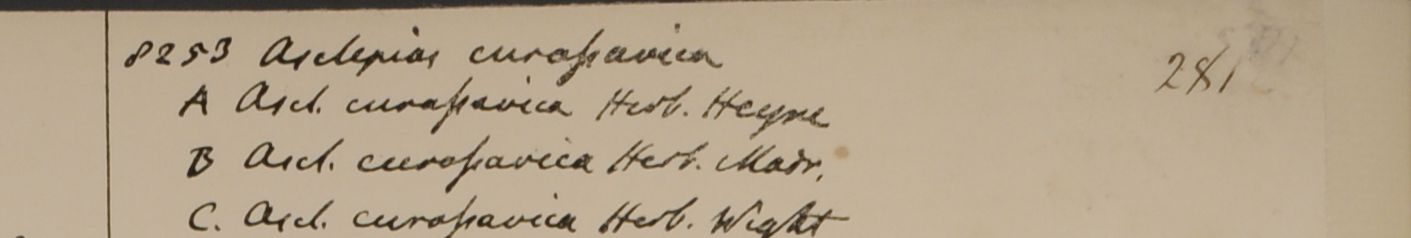 8253 Asclepias curaſsavica 281
A Ascl. curaſsavica Herb. Heyne
B Ascl. curaſsavica Herb. Madr.
C. Ascl. curaſsavica Herb. Wight